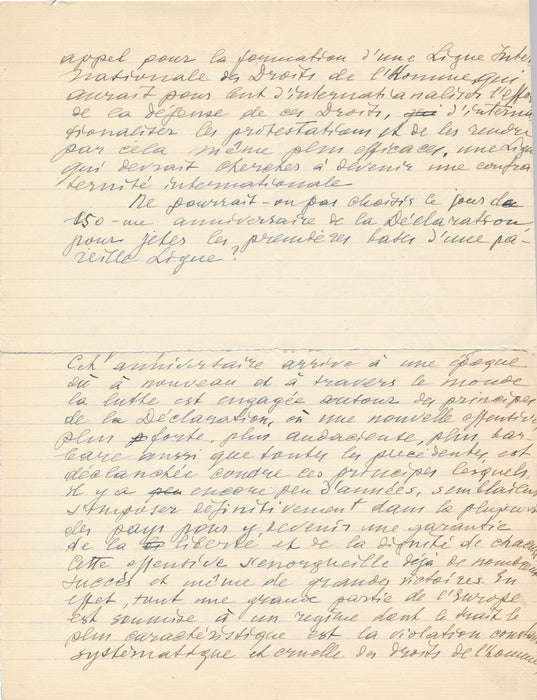 appel pour la formation d'une Ligue Inter
nationale des Droits de l'Homme, qui
aurait pour but d'internationaliser l'effor
de la défense de ces Droits, d'interna
tionaliser les protestations et de les rendre
par cela même plus efficaces, une Ligue
qui devrait chercher à devenir une confra
ternité internationale
Ne pourrait-on pas choisir le jour du
150-me anniversaire de la Déclaration
pour jeter les premières bases d'une pa-
reille Ligue?
Cet anniversaire arrive à une époque
où à nouveau et à travers le monde
la lutte est engagée autour des principes
de la Déclaration, où une nouvelle offensive
plus forte, plus audacieuse, plus bar-
bare aussi que toutes les précédentes, est
déclanchée contre ces principes lesquels,
il y a encore peu d'années, semblaient
s'imposer définitivement dans la plupart
des pays pour y devenir une garantie
de la liberté et de la dignité de chacun
Cette offensive s'enorgueille déjà de nombreux
succès et même de grandes victoires. En
effet, tout une grande partie de l'Europe
est soumise à un régime dont le trait le
plus caractéristique est la violation constante
systématique et cruelle des droits de l'homme